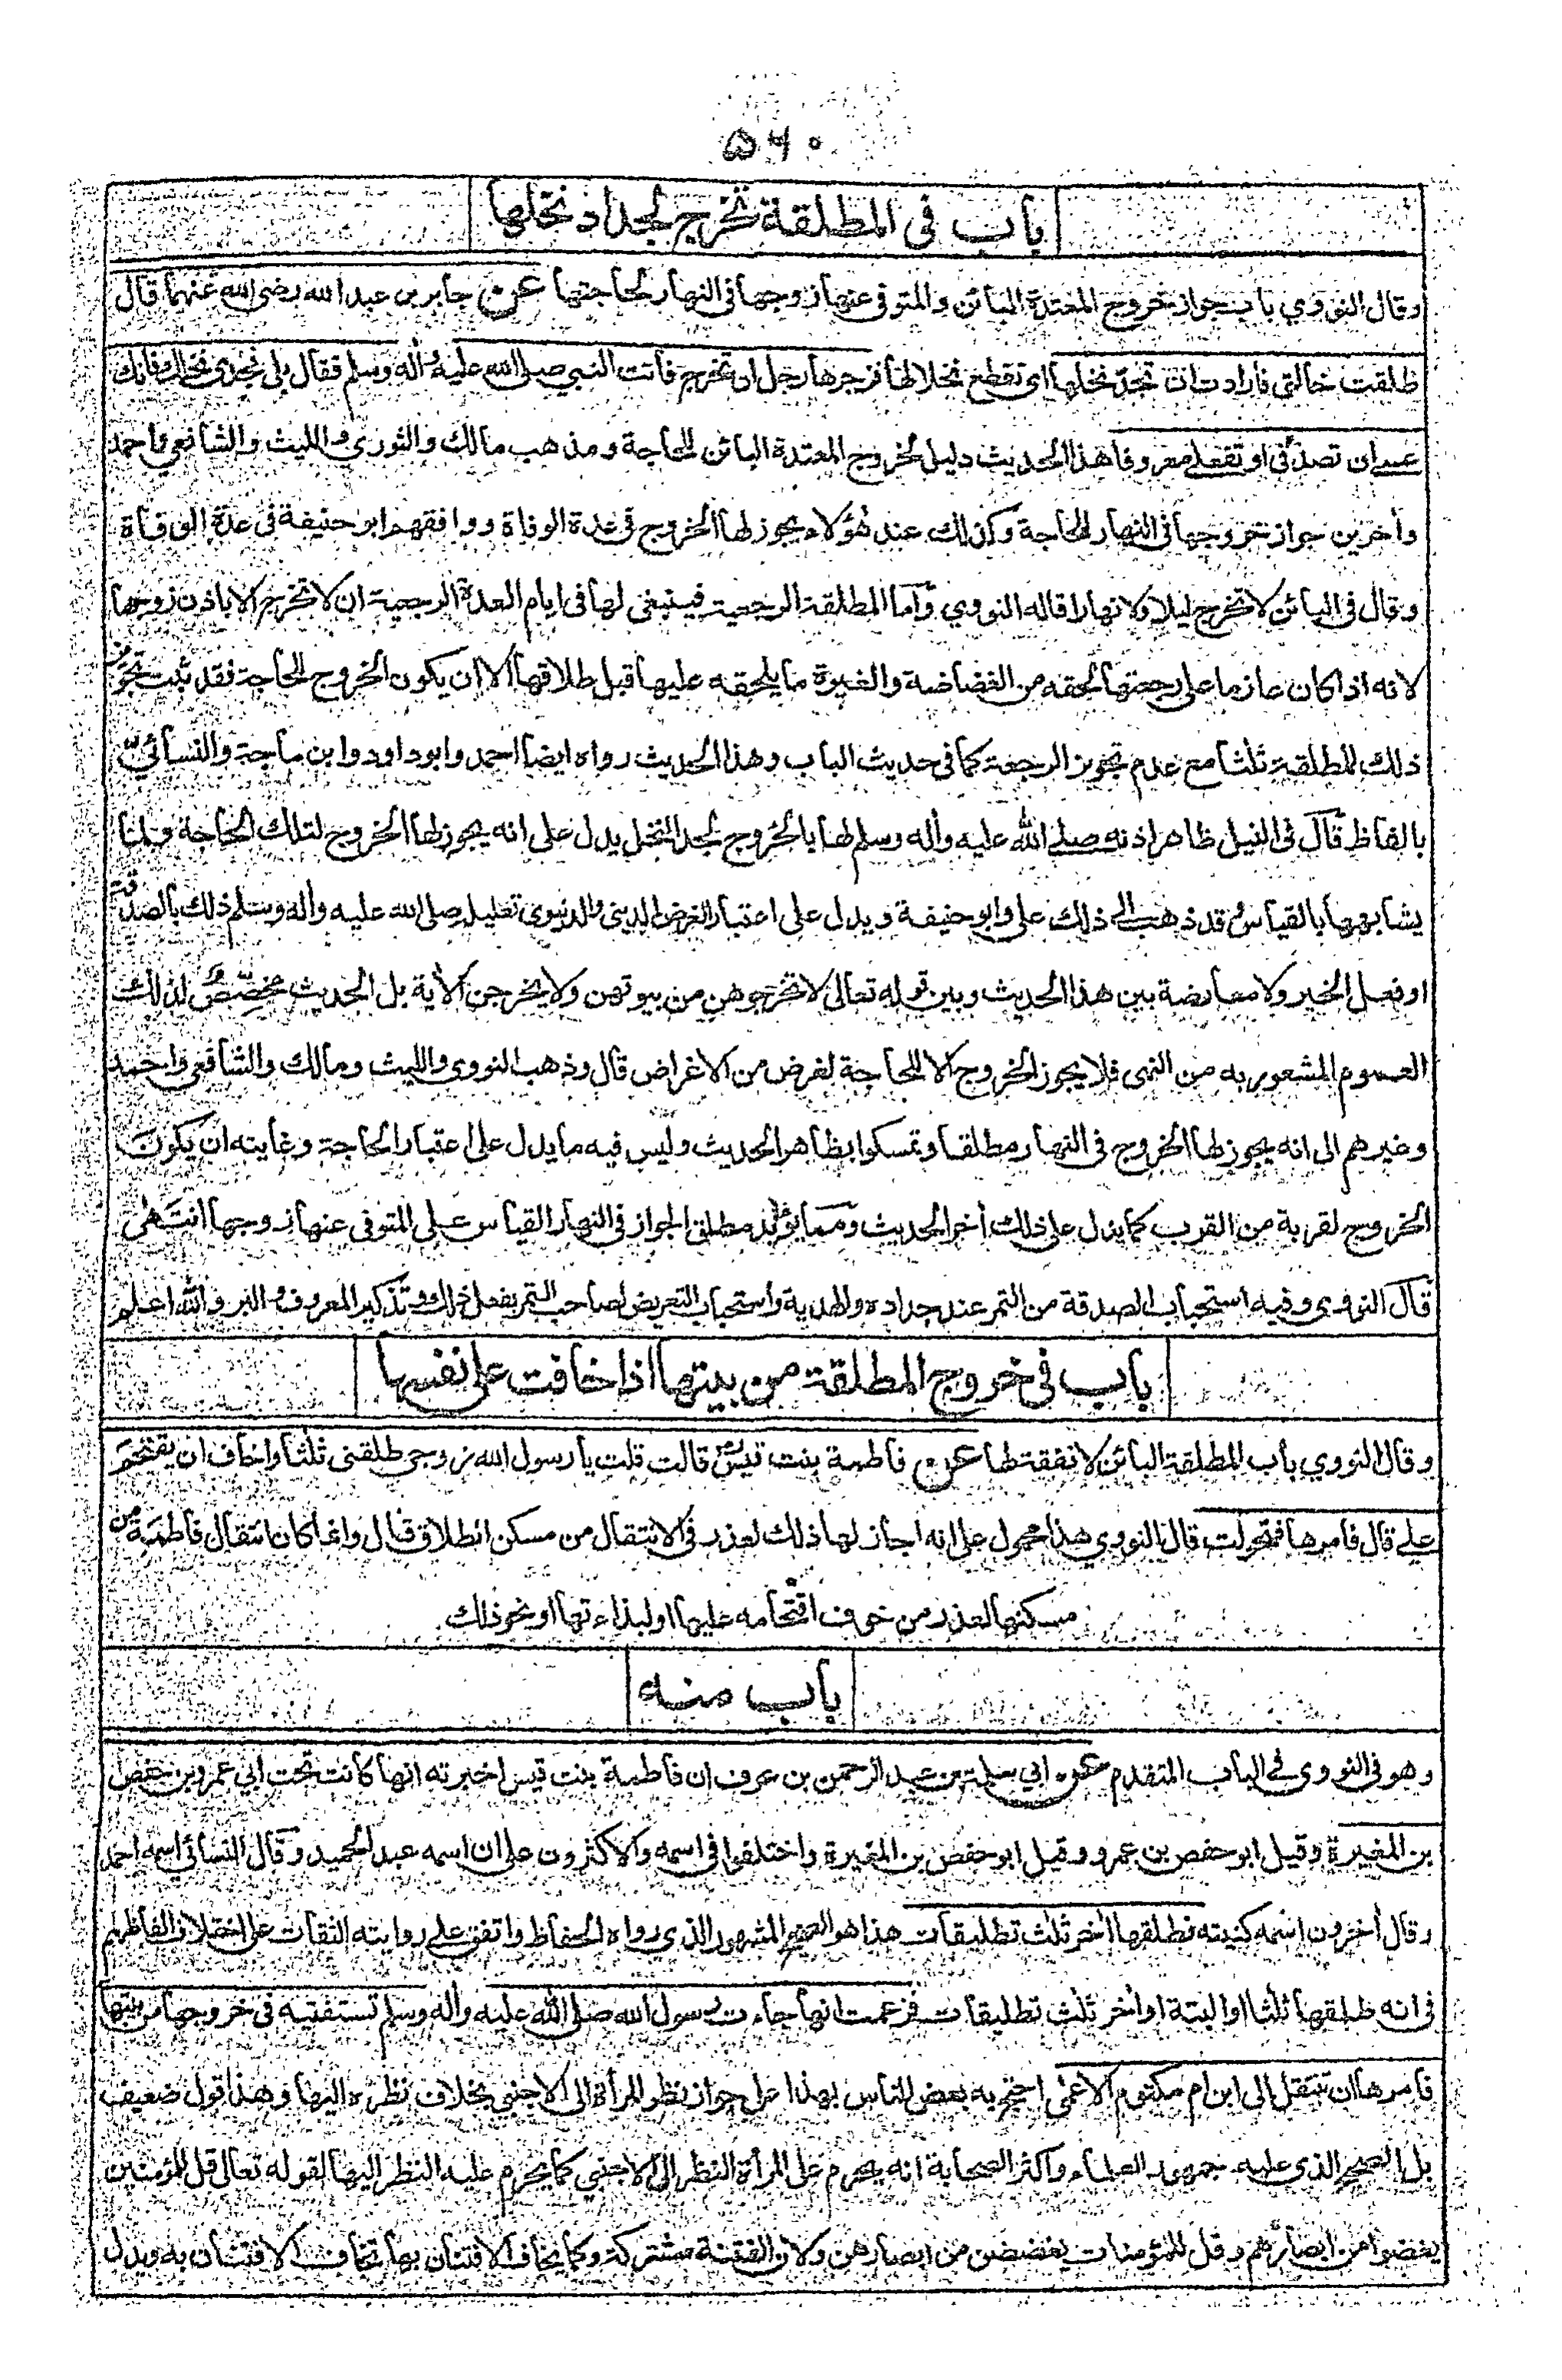 ۵۶۰
باب فى المطلقة تخرج لجداد نخلها
وقال النووي باب جواز خروج المعتدة البائن والمتوفى عنها زوجها فى النهار لحاجتها عن جابر بن عبد الله رضى الله عنهما قال
طلقت خالتى فارادت ان تجد نخلها اى تقطع نخلا لها فزجرها رجل ان تخرج فاتت النبي صلى الله عليه واله وسلم فقال بلى فجدى نخلك فانك
عسى ان تصدقى او تفعلى معروفا هذا الحديث دليل لخروج المعتدة البائن للحاجة ومذهب مالك والثورى والليث والشافعي واحمد
وأخرين جواز خروجها فى النهار للحاجة وكذلك عند هؤلاء يجوز لها الخروج فى عدة الوفاة ووافقهم ابو حنيفة فى عدة الوفاة
وقال فى البائن لا تخرج ليلا ولا نهارا قاله النووي وأما المطلقة الرجعية فينبغى لها فى ايام العدة الرجعية ان لا تخرج الا باذن زوجها
لانه اذا كان عازما على رجعتها لحقه من الغضاضة والغيرة ما يلحقه عليها قبل طلاقها الا ان يكون الخروج لحاجة فقد ثبت تجويز
ذلك للمطلقة ثلثا مع عدم تجويز الرجعة كما فى حديث الباب وهذا الحديث رواه ايضا احمد وابو داود وابن ماجة والنسائي
بالفاظ قال فى النيل ظاهر اذنه صلى الله عليه وأله وسلم لها بالخروج لجد النخل يدل على انه يجوز لها الخروج لتلك الحاجة ولما
يشابهها بالقياس وقد ذهب الى ذلك على وابو حنيفة ويدل على اعتبار الغرض الدينى والدنيوى تعليله صلى الله عليه واله وسلم ذلك بالصدقة
او فعل الخير ولا معارضة بين هذا الحديث وبين قوله تعالى لا تخرجوهن من بيوتهن ولا يخرجن الأية بل الحديث مخصص لذلك
العموم المشعور به من النهى فلا يجوز الخروج الا للحاجة لغرض من الاغراض قال وذهب النووى والليث ومالك والشافعى واحمد
وغيرهم الى انه يجوز لها الخروج فى النهار مطلقا وتمسكوا بظاهر الحديث وليس فيه ما يدل على اعتبار الحاجة وغايته ان يكون
الخروج لقربة من القرب كما يدل على ذلك أخر الحديث ومما يؤيد مطلق الجواز فى النهار القياس على المتوفى عنها زوجها انتهى
قال النووى وفيه استحباب الصدقة من التمر عند جداده والهدية واستحباب التعريض لصاحب التمر بفعل ذلك وتذكير المعروف والبر والله اعلم
باب فى خروج المطلقة من بيتها اذا خافت على نفسها
وقال النووي باب المطلقة البائن لا نفقة لها عن فاطمة بنت قيس قالت قلت يا رسول الله زوجى طلقنى ثلثا واخاف ان يقتحم
على قال فامرها فتحولت قال النووي هذا محمول على انه اجاز لها ذلك لعذر فى الانتقال من مسكن الطلاق قال وانما كان انتقال فاطمة من
مسكنها لعذر من خوف اقتحامه عليها او لبذاءتها او نحو ذلك
باب منه
وهو فى النووى فى الباب المتقدم عن ابي سلمة بن عبد الرحمن بن عوف ان فاطمة بنت قيس اخبرته انها كانت تحت ابي عمرو بن حفص
بن المغيرة وقيل ابو حفص بن عمرو وقيل ابو حفص بن المغيرة واختلفوا فى اسمه والاكثرون على ان اسمه عبد الحميد وقال النسائي اسمه احمد
وقال أخرون اسمه كنيته فطلقها أخر ثلث تطليقات هذا هو الصحيح المشهور الذى رواه الحفاظ واتفق على روايته الثقات على اختلاف الفاظهم
فى انه طلقها ثلثا او البتة او أخر ثلث تطليقات فزعمت انها جاءت رسول الله صلى الله عليه واله وسلم تستفتيه فى خروجها من بيتها
فامرها ان تنتقل الى ابن ام مكتوم الاعمى احتج به بعض الناس بهذا على جواز نظر المرأة الى الاجنبى بخلاف نظره اليها وهذا قول ضعيف
بل الصحيح الذى عليه جمهور العلماء واكثر الصحابة انه يحرم على المرأة النظر الى الاجنبي كما يحرم عليه النظر اليها لقوله تعالى قل للمؤمنين
يغضوا من ابصارهم وقل للمؤمنات يغضضن من ابصارهن ولان الفتنة مشتركة وكما يخاف الافتتان بها تخاف الافتتان به ويدل